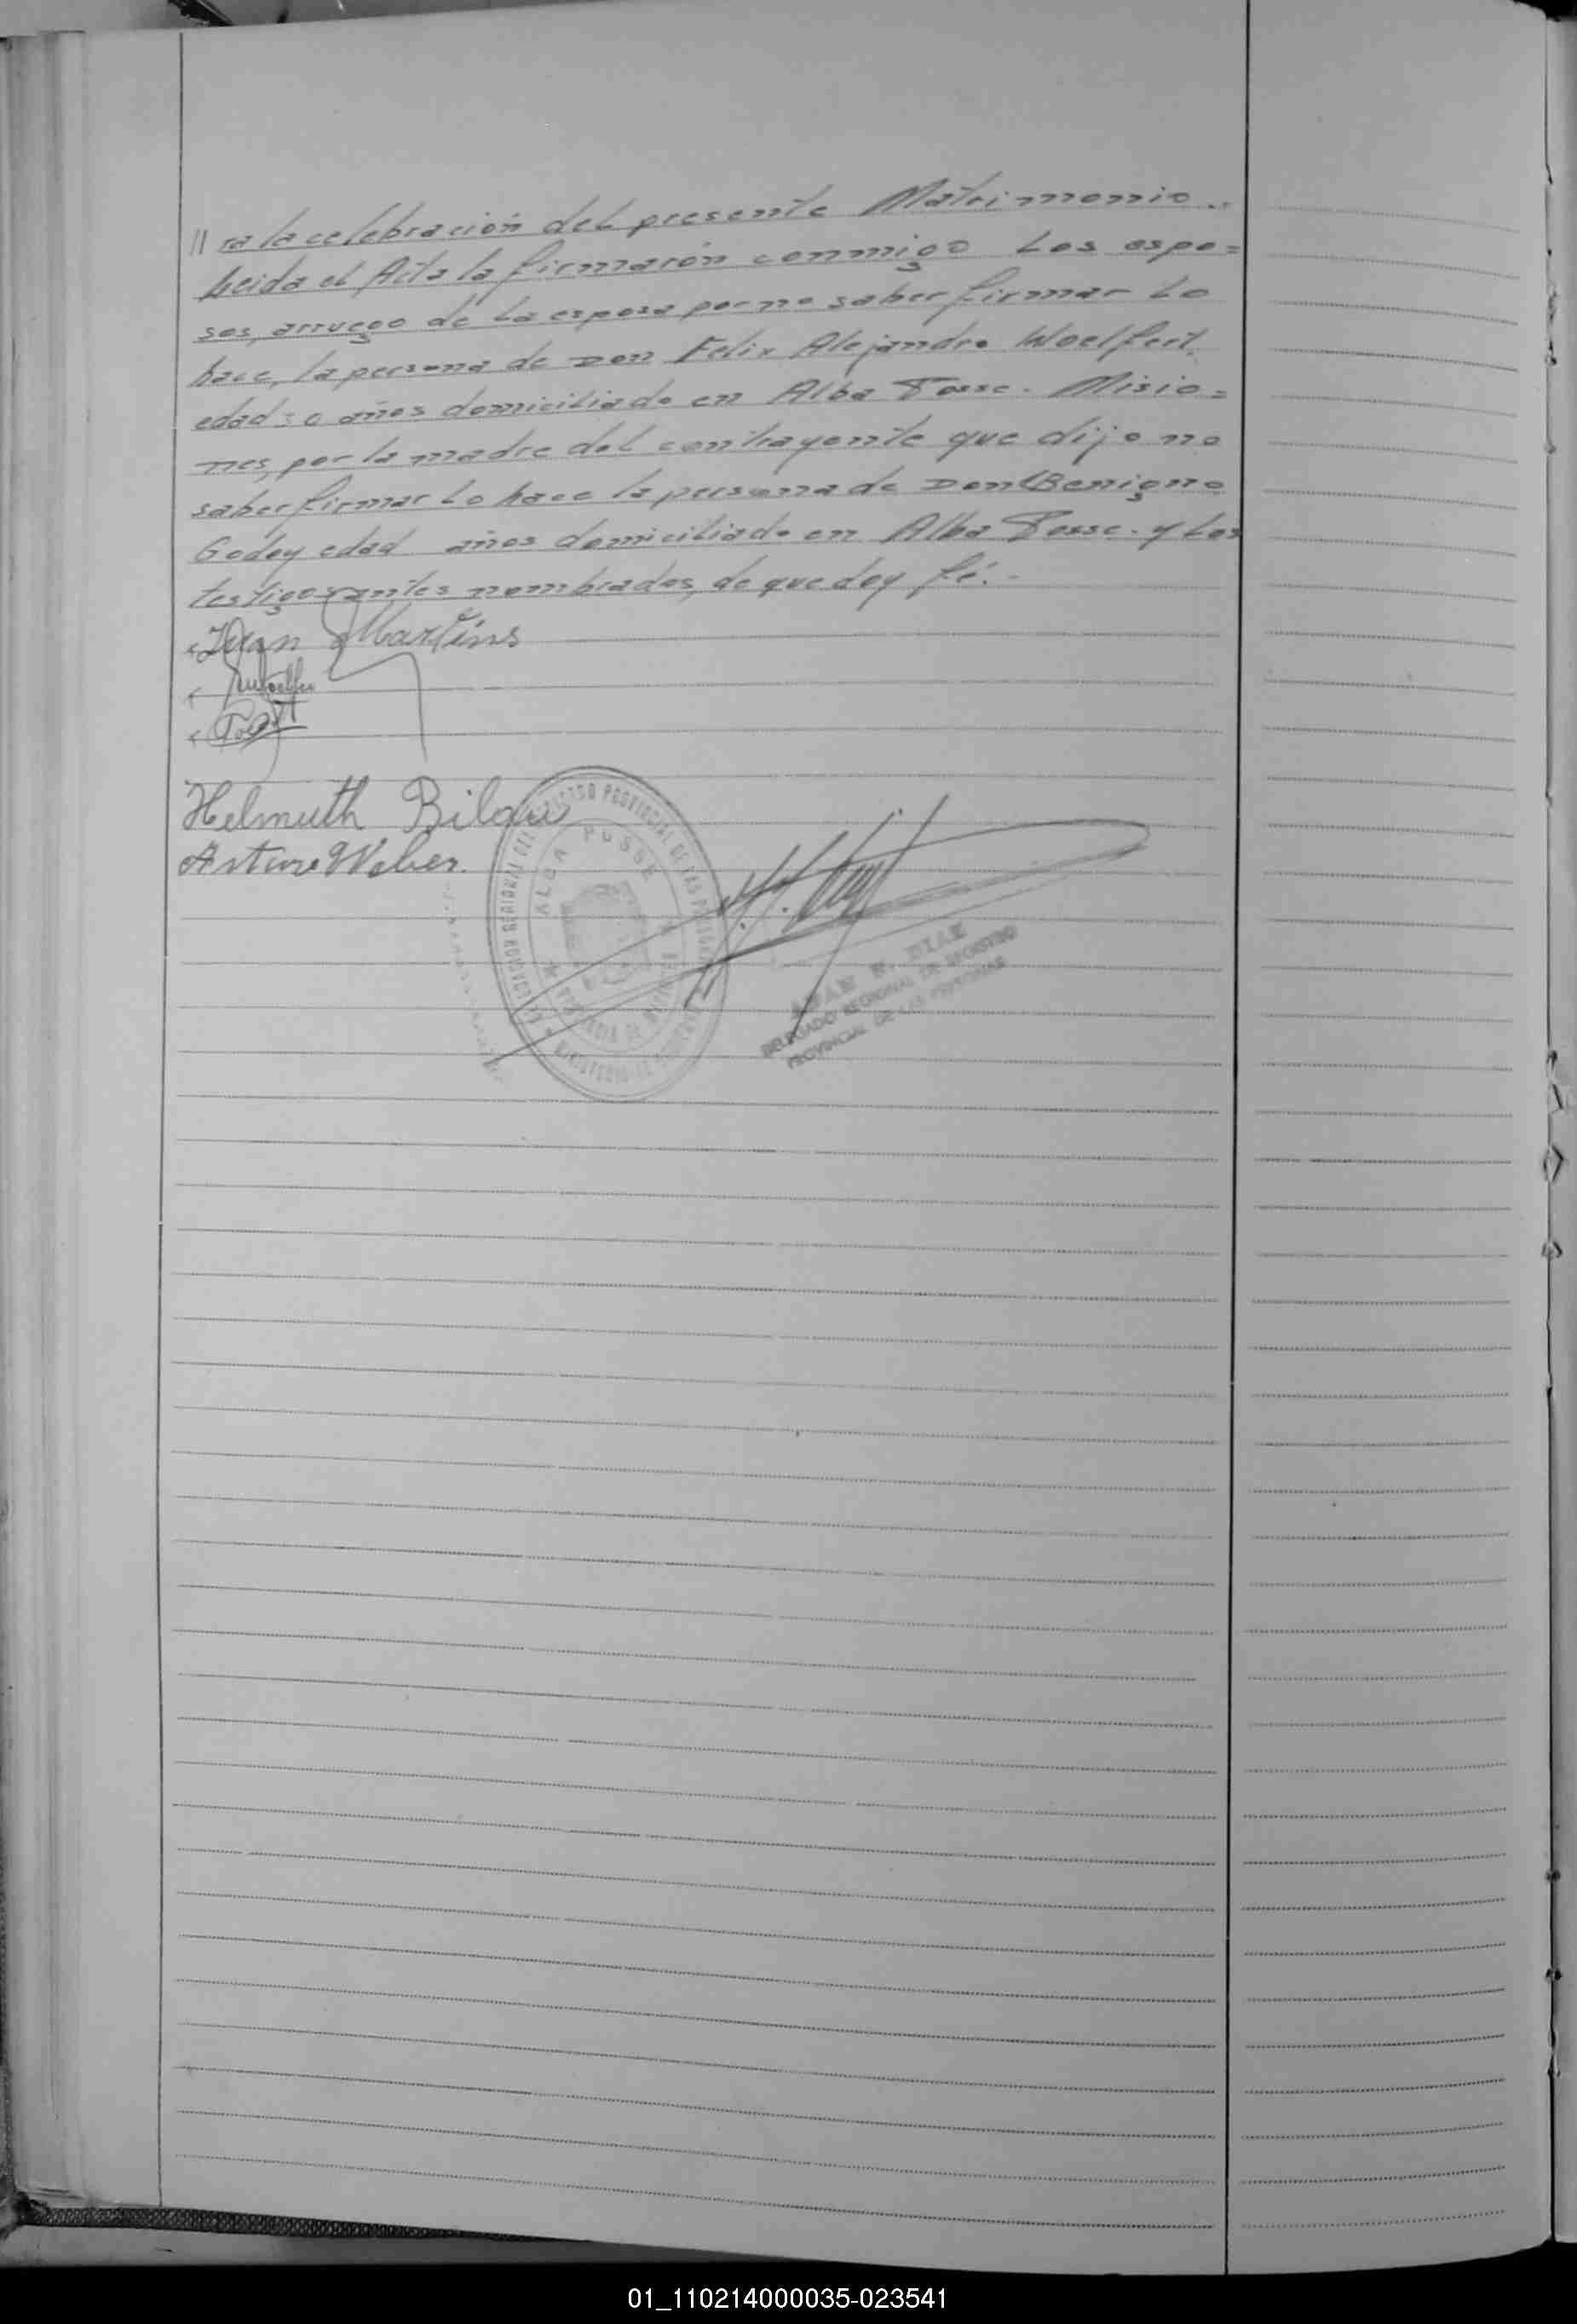 // ra la celebración del presente Matrimonio..
Leida el Acta la firmarón conmigo Los espo=
sos, arruego de la esposa por no saber firmar Lo
hace, la persona de Don Felix Alejandro Woelfert.
edad años domiciliado en Alba Posse. Misio=
nes, por la madre del contrayente que dijo no
saber firmar Lo hace la persona de Don Benigno
Godoy edad años domiciliado en Alba Posse. y Los
testigos antes nombrados, de que doy fé.-
Juan Martins
Helmuth Bilau
Arturo Weber.
ALBA POSSE
DELEGADO REGIONAL DE REGISTRO
PROVINCIAL DE LAS PERSONAS
01_110214000035-023541